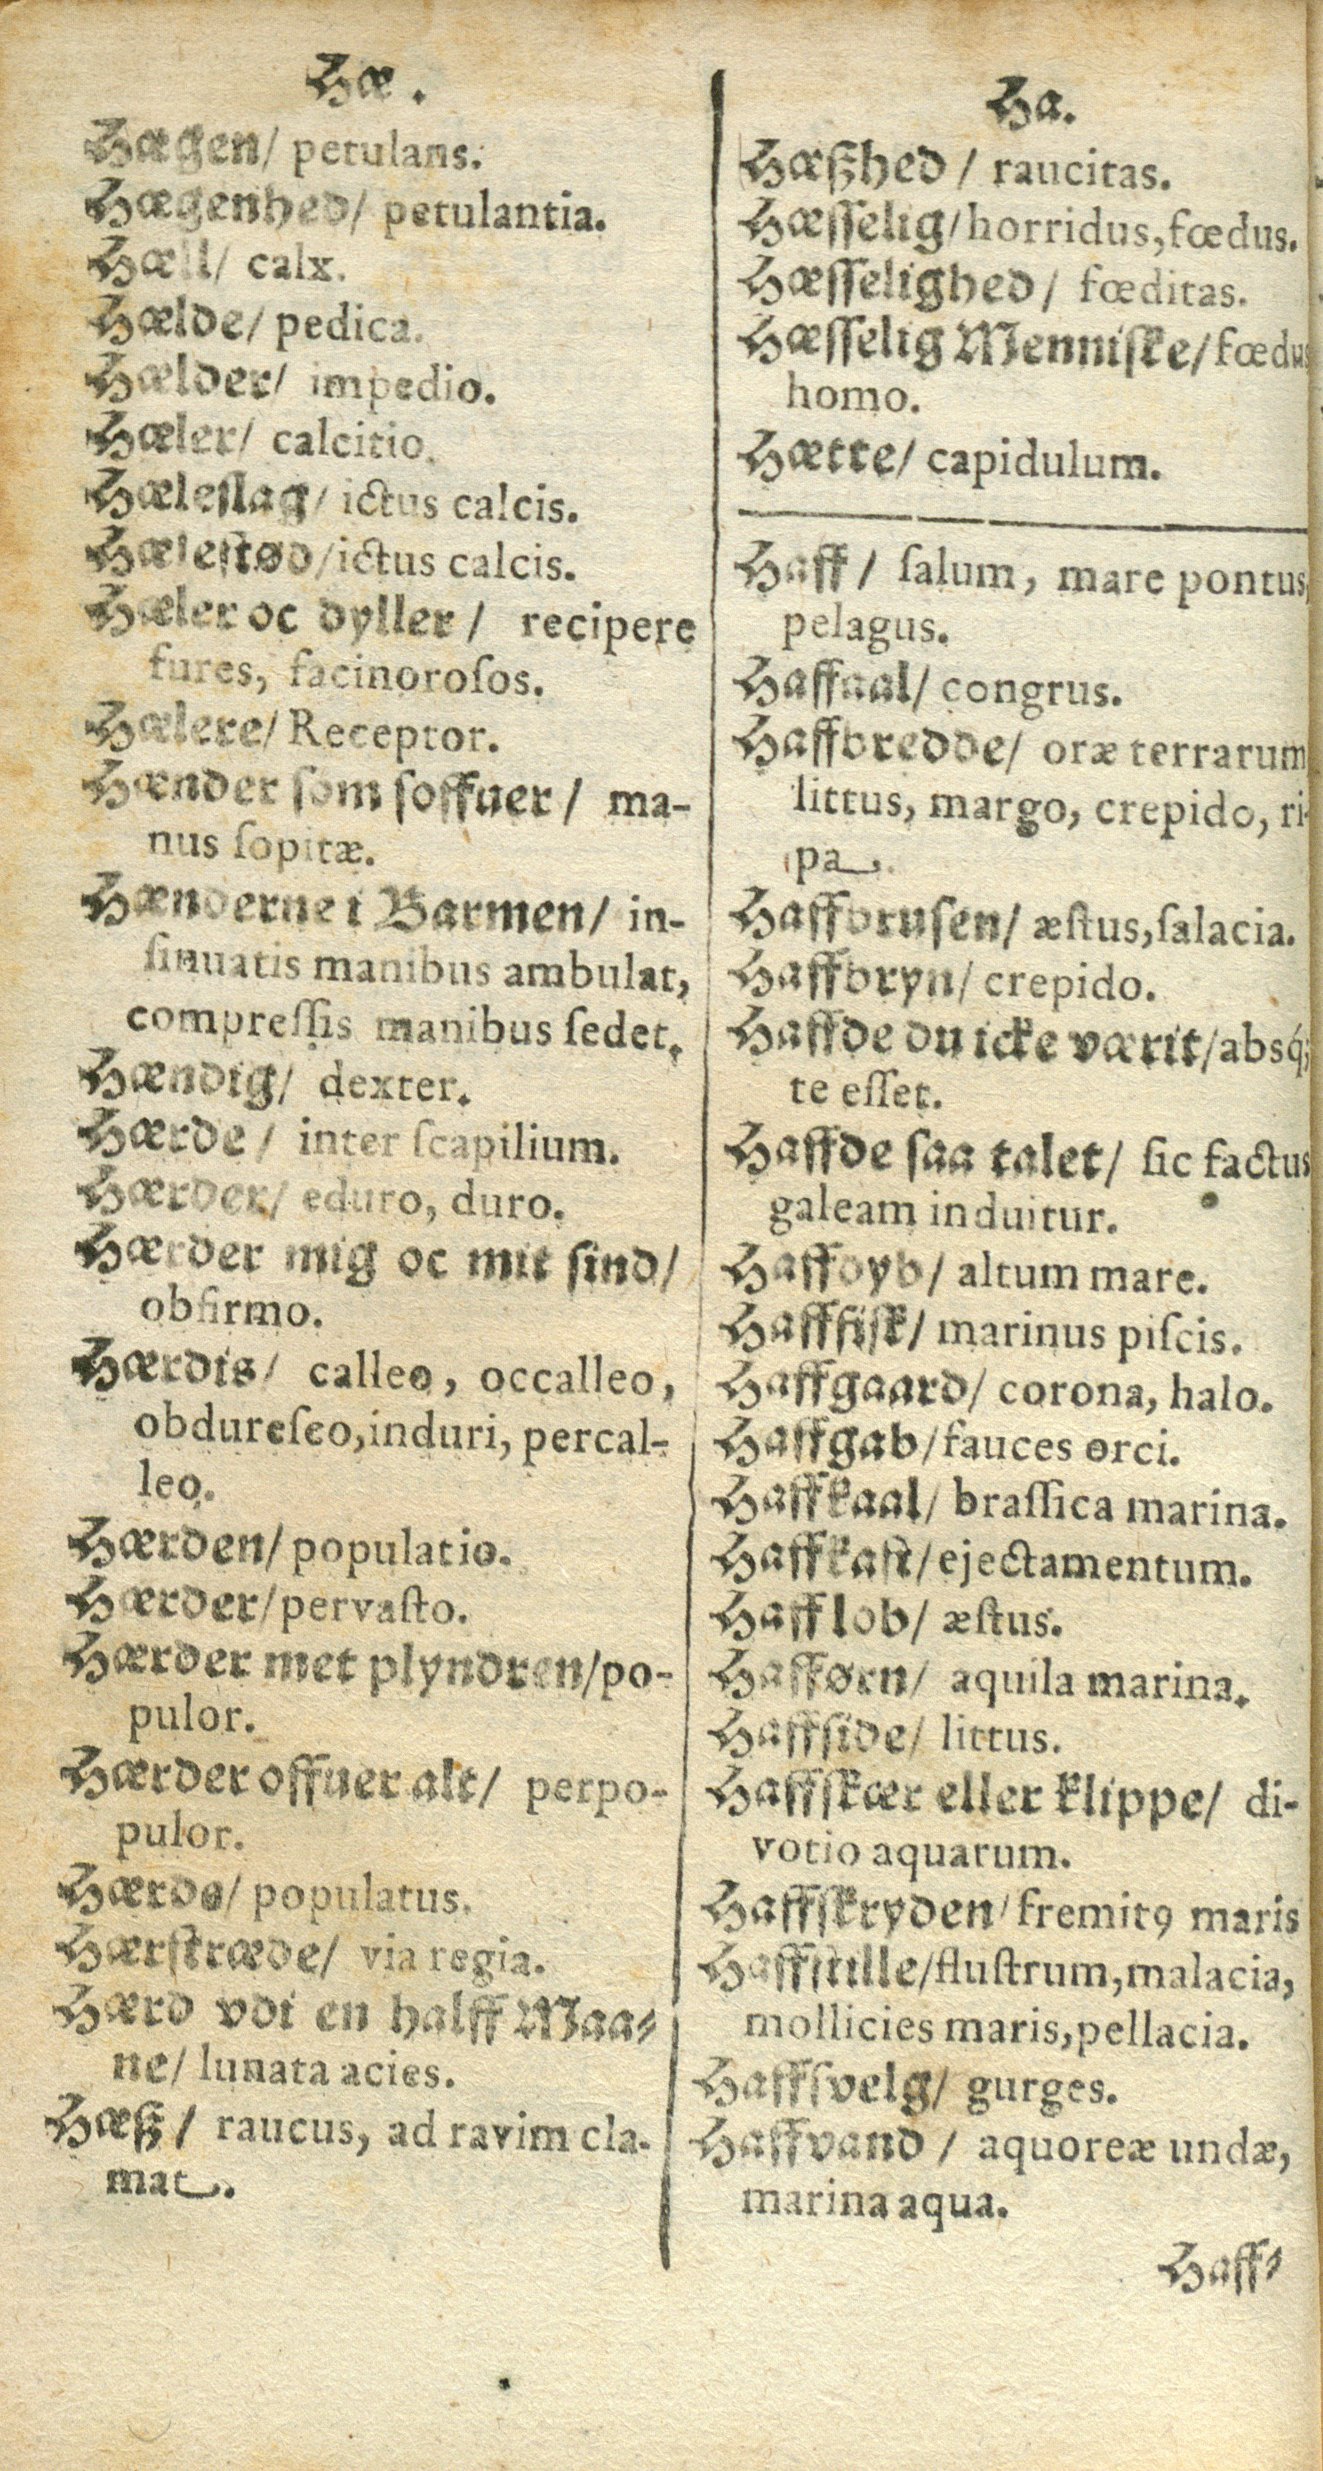 Hæ.
Hægen/ petulans.
Hægenhed/ petulantia.
Hæll/ calx.
Hælde/ pedica.
Hælder/ impedio.
Hæler/ calcitio.
Hæleslag/ ictus calcis.
Hælestød/ictus calcis.
Hæler oc dyller/ recipere
fures, facinoroſos.
Hælere/ Receptor.
Hænder ſom ſoffuer/ ma-
nus ſopitæ.
Hænderne i Barmen/ in-
ſinuatis manibus ambulat,
compreſſis manibus ſedet.
Hændig/ dexter.
Hærde/ inter ſcapilium.
Hærder/ eduro, duro.
Hærder mig oc mit ſind/
obfirmo.
Hærdis/ calleo, occalleo,
obdureſco, induri, percal-
leo.
Hærden/ populatio.
Hærder/pervaſto.
Hærder met plyndren/po-
pulor.
Hærder offuer alt/ perpo-
pulor.
Hærde/ populatus.
Hærſtræde/ via regia.
Hærd vdi en halff Maa-
ne/ lunata acies.
Hæß/ raucus, ad ravim cla-
mat.
Ha.
Hæßhed/ raucitas.
Hæſſelig/horridus,fœdus.
Hæſſelighed/ fœditas.
Hæſſelig Menniſke/fœdus
homo.
Hætte/ capidulum.
Haff/ ſalum, mare pontus,
pelagus.
Haffaal/ congrus.
Haffbredde/ oræ terrarum
littus, margo, crepido, ri-
pa.
Haffbruſen/ æſtus,ſalacia.
Haffbryn/ crepido.
Haffde du icke værit/absq́;
te eſſet.
Haffde ſaa talet/ ſic factus
galeam induitur.
Haffdyb/ altum mare.
Hafffiſk/ marinus piſcis.
Haffgaard/ corona, halo.
Haffgab/fauces orci.
Haffkaal/ braſſica marina.
Haffkaſt/ejectamentum.
Hafflob/ æſtus.
Hafførn/ aquila marina.
Haffſide/ littus.
Haffſkær eller klippe/ di-
votio aquarum.
Haffſkryden/ fremitꝯ maris
Haffſtille/fluſtrum,malacia,
mollicies maris,pellacia.
Haffſvelg/ gurges.
Haffvand/ aquoreæ undæ,
marina aqua.
Haff-